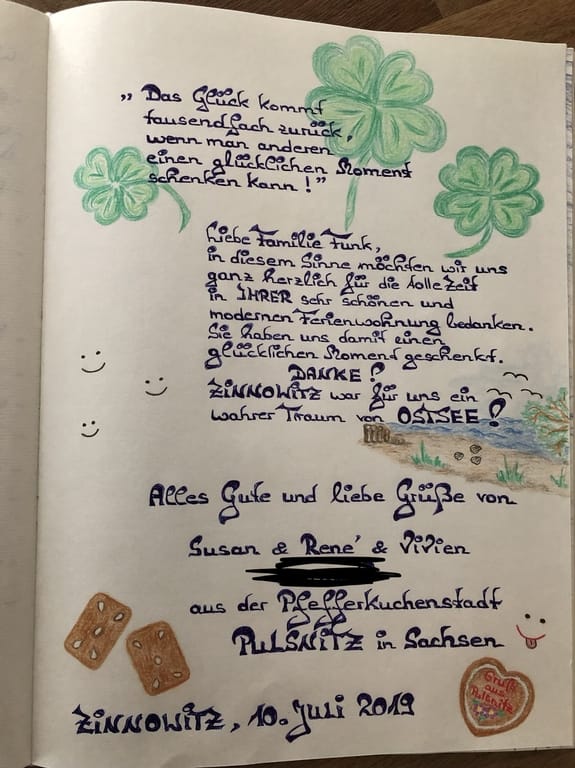 „Das Glück kommt
tausendfach zurück,
wenn man anderen
einen glücklichen Moment
schenken kann!"
Liebe Familie Funk,
in diesem Sinne möchten wir uns
ganz herzlich für die tolle Zeit
in IHRER sehr schönen und
modernen Ferienwohnung bedanken.
Sie haben uns damit einen
glücklichen Moment geschenkt.
DANKE!
ZINNOWITZ war für uns ein
wahrer Traum von OSTSEE!
Alles Gute und liebe Grüße von
Susan & René & Vivien
aus der Pfefferkuchenstadt
PULSNITZ in Sachsen
Gruß
aus
Pulsnitz
ZINNOWITZ, 10. Juli 2019